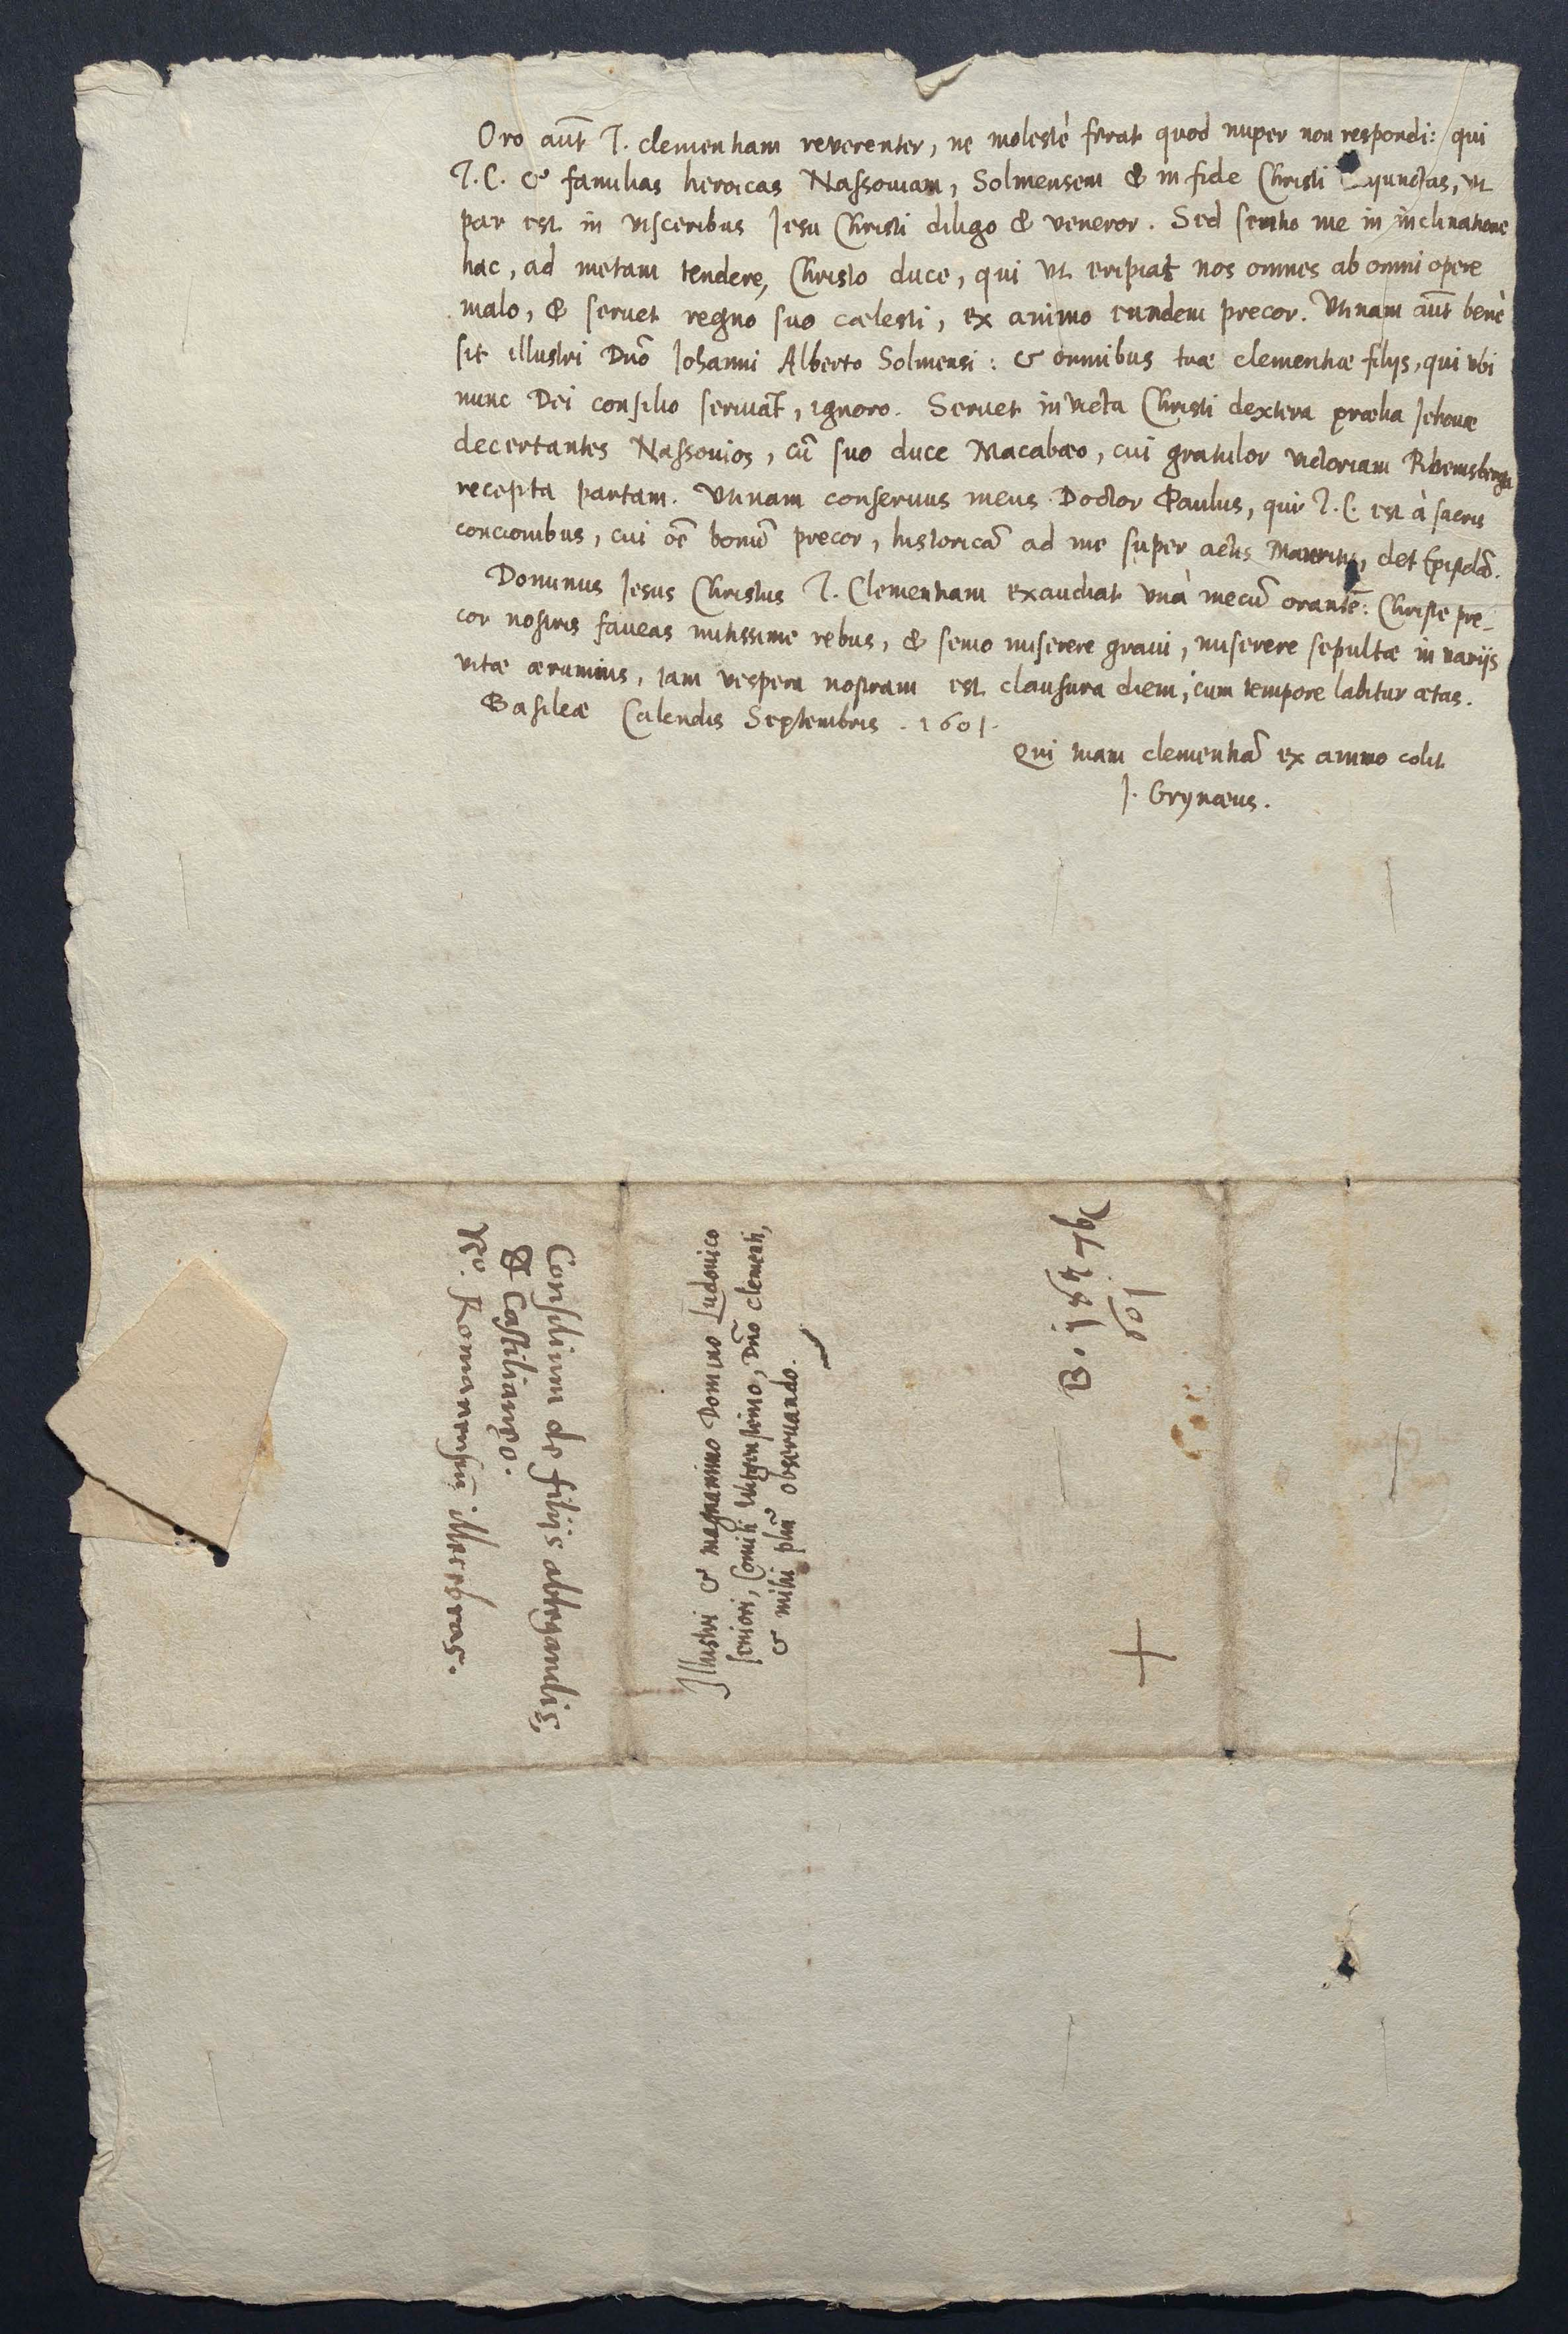 Oro aūt T. clementiam reverenter, ne molestè ferat quod nuper non respondi: qui
T. C. & familias heroicas Nassoviam, Solmensem & in fide Christi iunctas, ut
par est in visceribus Jesu Christi diligo & veneror. Sed sentio me in inclinatione
hac, ad metam tendere, Christo duce, qui ut eripiat nos omnes ab omni opere
malo, & servet regno suo cælesti, ex animo eundem precor. Utinam aūt benè
sit illustri Dnō Johanni Alberto Solmensi: & omnibus tuæ clementiæ filijs, qui ubi
nunc Dei consilio serviāt, ignoro. Servet invicta Christi dextera prælia Jehovæ
decertantes Nassovios, cū suo duce Macabæo, cui gratulor victoriam
recepta partam. Utinam conservus meus Doctor Paulus, qui T. C. est à sacris
concionibus, cui oē bonū precor, historicā ad me super actis Mauritij, det Epistolā.
Dominus Jesus Christus T. Clementiam exaudiat unà mecū orantē: Christe pre-
cor nostris faveas mitissime rebus, & senio miserere gravi, miserere sepultæ in varijs
vitæ ærumnis, iam vespera nostram est clausura diem, cum tempore labitur ætas.
Basileæ Calendis Septembris. 1601.
Qui tuam clementiā ex animo colit
J. Grynæus.
Consilium de filijs ablegandis,
& Castilianęo.
Illustri & magnanimo Domino Ludovico
seniori, Comiti Witgensteinio, Dnō clementi,
& mihi plm̄ observando.
601